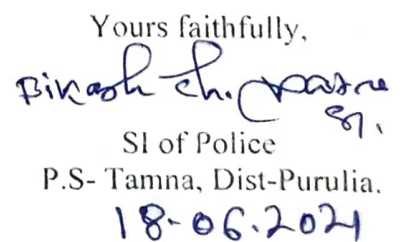 Yours faithfully,
Bikash Ch.
SI.
SI of Police
P.S- Tamna, Dist-Purulia.
18-06.2021